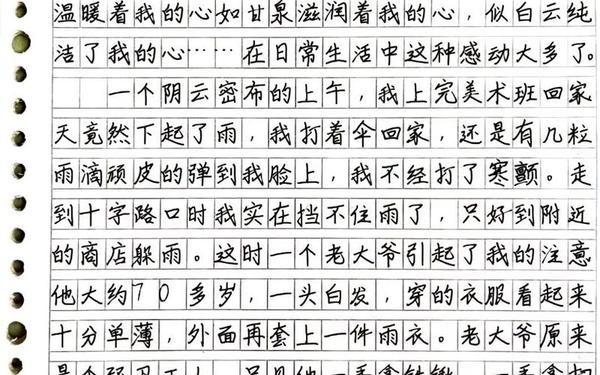 温暖着我的心如甘泉滋润着我的心，似白云纯
洁了我的心……在日常生活中这种感动大多了。
一个阴云密布的上午，我上完美术班回家
天竟然下起了雨，我打着伞回家，还是有几粒
雨滴顽皮的弹到我脸上，我不经打了寒颤。走
到十字路口时我实在挡不住雨了，只好到附近
的商店躲雨。这时一个老大爷引起了我的注意
他大约70多岁，一头白发，穿的衣服看起来
十分单薄，外面再套上一件雨衣。老大爷原来
是个环卫工人，只见他一手拿铁锹，一手拿扫